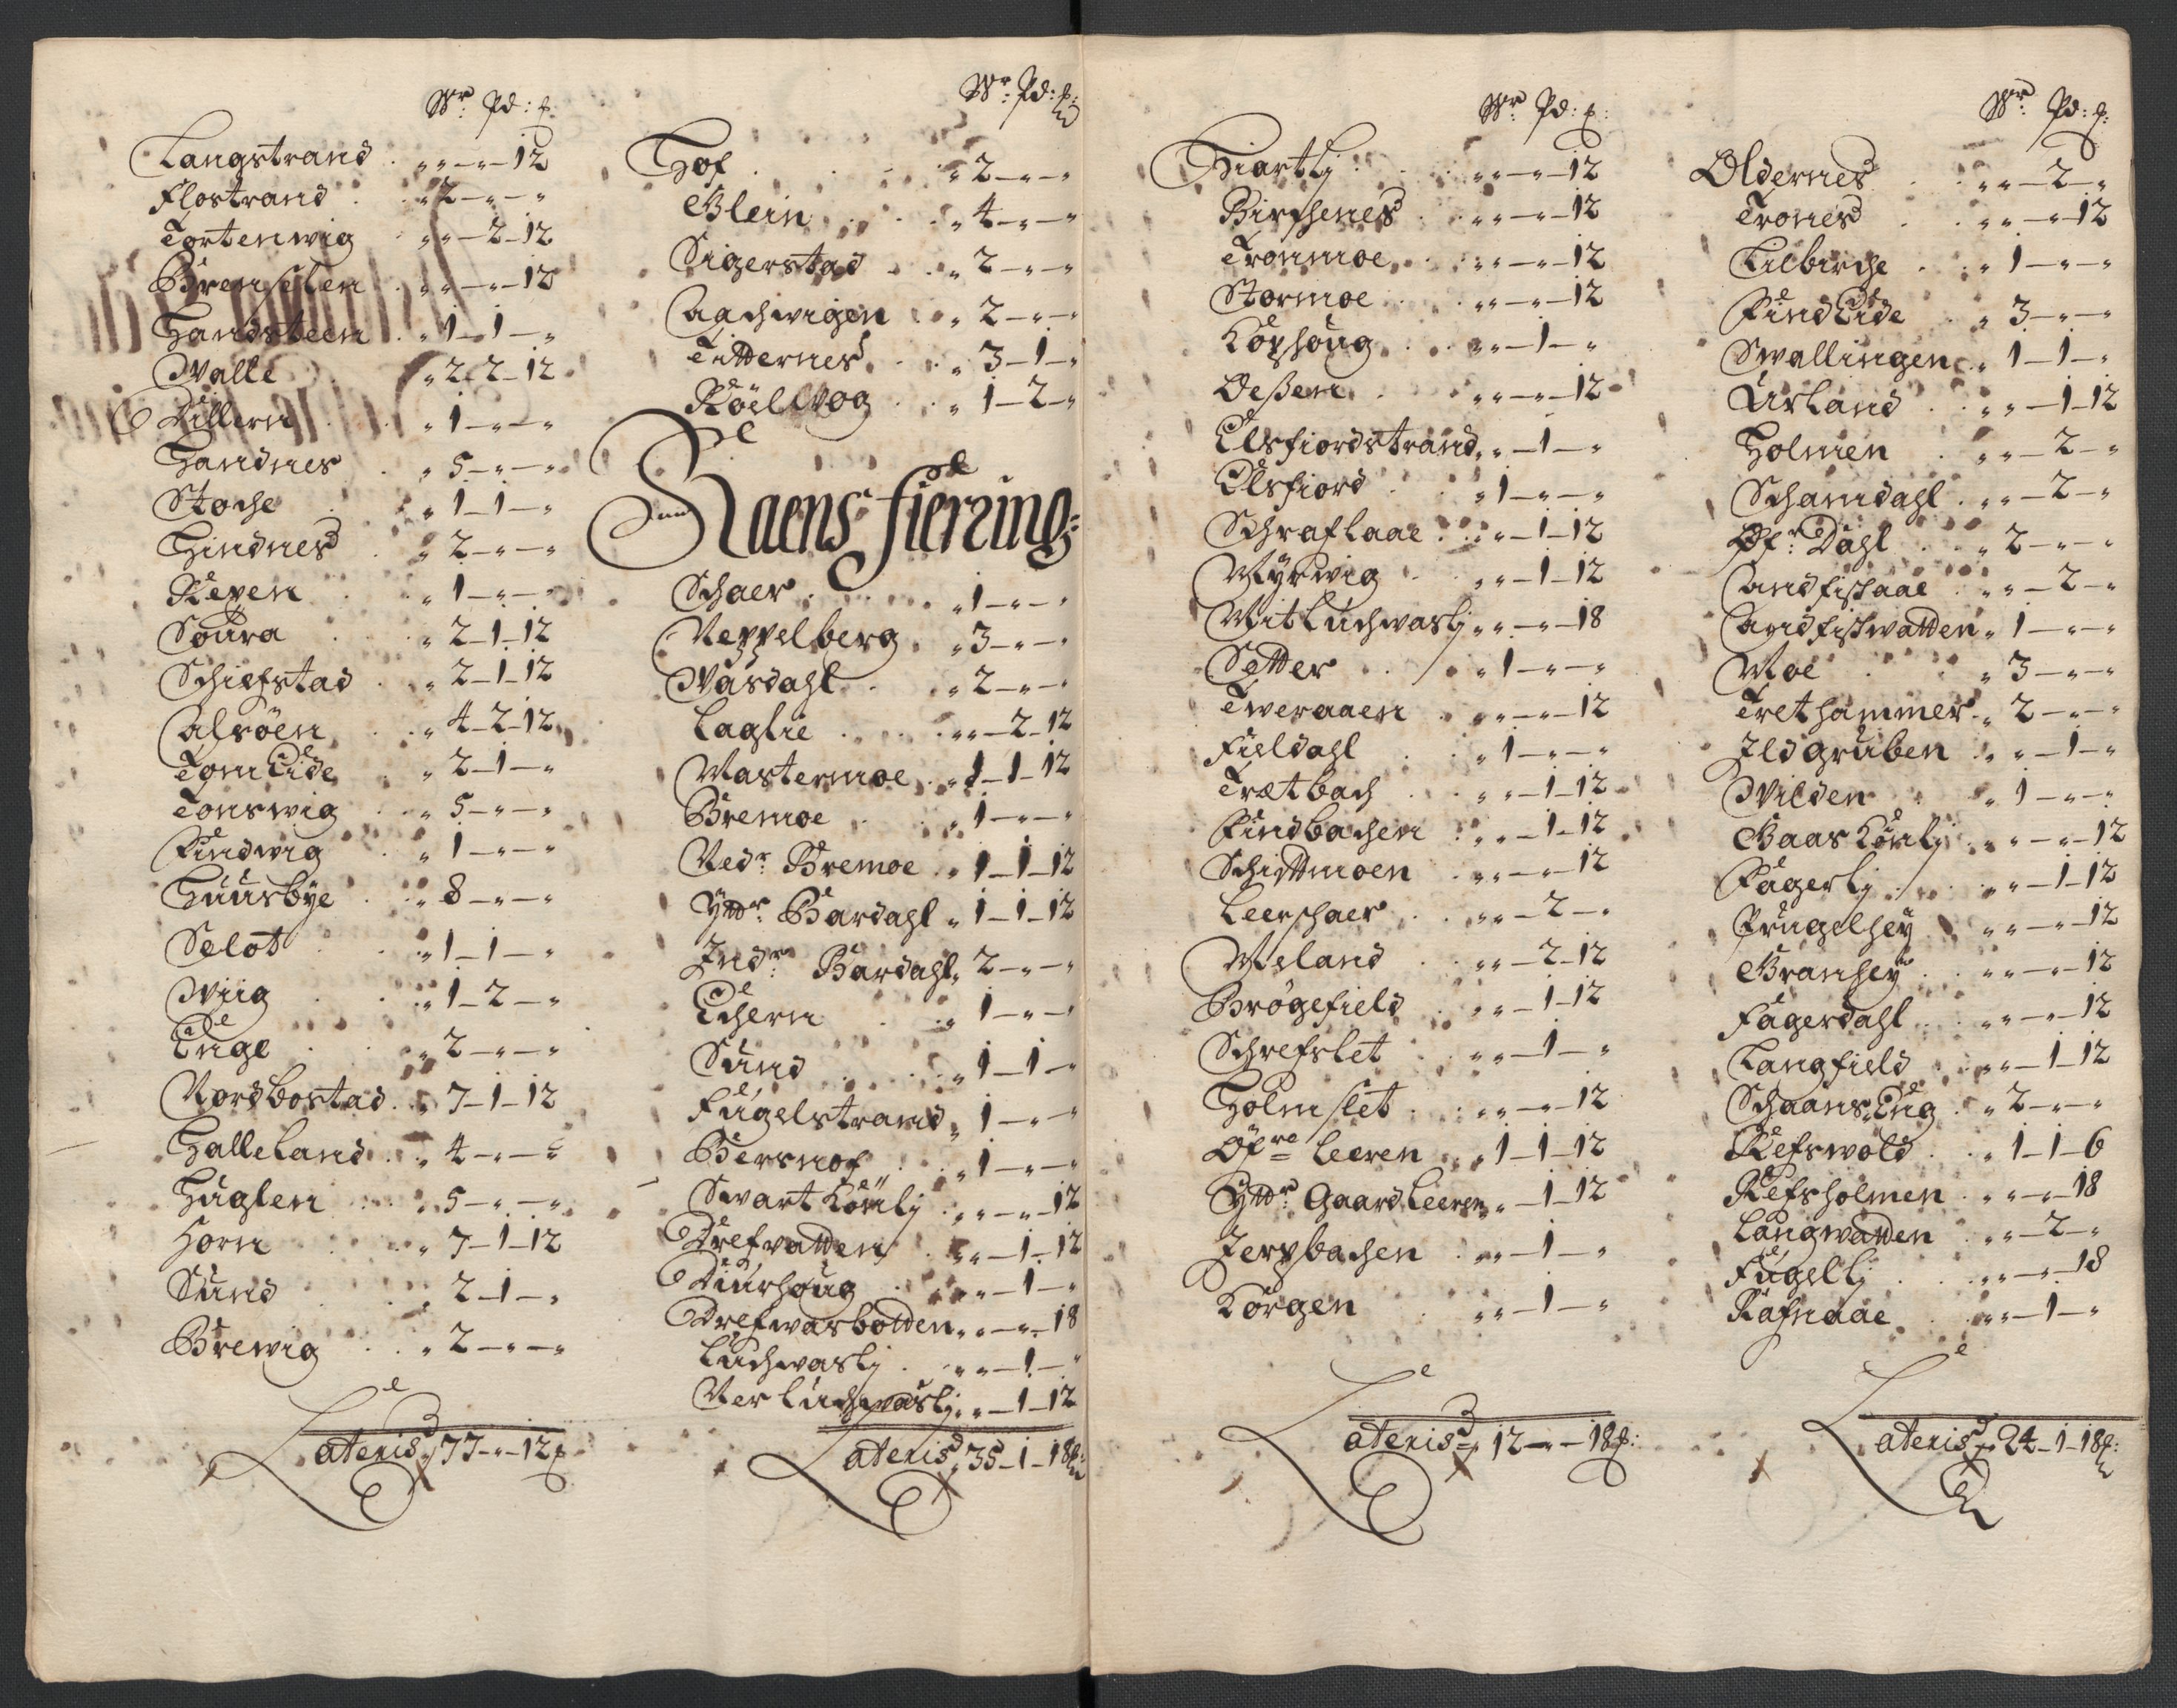 Wr: Pd: .
Langstrand . „ „ — „ — 12
Flostrand . „ 2 — „ — „
Tortenwig „ „ — 2 — 12
Brenselen . „ „ — „ — 12
Handsteen . „ 1 — 1 — „
Walle . „ 2 — 2 — 12
Dillern . „ 1 — „ — „
Handnes . „ 5 — „ — „
Stoche . „ 1 — 1 — „
Hindnes . „ 2 — „ — „
Reppen . „ 1 — „ — „
Soura . „ 2 — 1 — 12
Schiefstad . „ 2 — 1 — 12
Alsöen . „ 4 — 2 — 12
Tom Eide . „ 2 — 1 — „
Tonswig . „ 5 — „ — „
Findwig . „ 1 — „ — „
Huusbye . „ 8 — „ — „
Selot . „ 1 — 1 — „
Wiig . „ 1 — 2 — „
Enge . „ 2 — „ — „
Nordbostad . „ 7 — 1 — 12
Halleland . „ 4 — „ — „
Huglen . „ 5 — „ — „
Horn . „ 7 — 1 — 12
Sund . „ 2 — 1 — „
Brewig . „ 2 — „ — „
Lateris „ 77 — „ — 12
Wr: Pd: .
Hof . „ 2 — „ — „
Blein . „ 4 — „ — „
Sigerstad . „ 2 — „ — „
Aachwigen . „ 2 — „ — „
Titternes . „ 3 — 1 — „
Röelwog . „ 1 — 2 — „
Raens fiering:
Schaer . „ 1 — „ — „
Neppelberg . „ 3 — „ — „
Wasdahl . „ 2 — „ — „
Laglie . „ „ — 2 — 12
Mastermoe . „ 1 — 1 — 12
Bremoe . „ 1 — „ — „
Nedr: Bremoe . „ 1 — 1 — 12
Yttr: Bardahl „ 1 — 1 — 12
Indr: Bardahl „ 2 — „ — „
Echern . „ 1 — „ — „
Sund . „ 1 — 1 — „
Fugelstrand „ 1 — „ — „
Bersnof . „ 1 — „ — „
Swart Könlj . „ „ — „ — 12
Drefvatten . „ „ — 1 — 12
Diurhoug . „ „ — 1 — „
Drefwasbotten „ „ — „ — 18
Luchwaslj . „ „ — 1 — „
Ner Luchwaslj „ „ — 1 — 12
Lateris „ 35 — 1 — 18
Wr: Pd: .
Hiartlj . „ „ — „ — 12
Birchenes . „ „ — „ — 12
Tronmoe . „ „ — „ — 12
Stormoe . „ „ — „ — 12
Kophoug . „ „ — 1 — „
Oeßen . „ „ — „ — 12
Elsfiordstrand „ „ — 1 — „
Elsfiord . „ 1 — „ — „
Schraflaae . „ „ — 1 — 12
Myrwig . „ „ — 1 — 12
Mitluchwaslj „ „ — „ — 18
Setter . „ 1 — „ — „
Tweraaen . „ „ — „ — 12
Fieldahl . „ 1 — „ — „
Trætbach . „ „ — 1 — 12
Findbachen . „ „ — 1 — 12
Schittmoen . „ „ — „ — 12
Leerschaer . „ „ — 2 — „
Meland . „ „ — 2 — 12
Brögefield . „ „ — 1 — 12
Schrefslet . „ „ — 1 — „
Holmslet . „ „ — „ — 12
Øfre Leeren „ 1 — 1 — 12
Yttr: Gaard Leeren „ „ — 1 — 12
Jerpbachen . „ „ — 1 — „
Korgen . „ „ — 1 — „
Lateris 12 — „ — 18
Wr: Pd: .
Oldernes . „ „ — 2 — „
Trones . „ „ — „ — 12
Lilbirche . „ 1 — „ — „
Find Eide . „ 3 — „ — „
Swallingen „ 1 — 1 — „
Urland . „ „ — 1 — 12
Holmen . „ „ — 2 — „
Schamdahl . „ „ — 2 — „
Øfr: Dahl . „ 2 — „ — „
Andfistaae . „ „ — 2 — „
Andfistwatten „ 1 — „ — „
Moe . „ 3 — „ — „
Trethammer „ 2 — „ — „
Ildgruben . „ „ — 1 — „
Wilden . „ 1 — „ — „
Baas Könlj . „ „ — „ — 12
Fagerlj . „ „ — 1 — 12
Prugelhey „ „ — „ — 12
Branhey . „ „ — „ — 12
Fagerdahl . „ „ — „ — 12
Langfield „ „ — 1 — 12
Schaans Eng . „ 2 — „ — „
Refswold . „ 1 — 1 — 6
Refsholmen . „ „ — „ — 18
Langwatten . „ „ — 2 — „
Fugellj . „ „ — „ — 18
Rafnaae . „ „ — 1 — „
Lateris 24 — 1 — 18